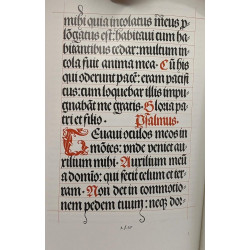 mihi quia incolatus meus p
lōgatus est: habitaui cum ha
bitantibus cedar: multum in
cola fuit anima mea. Cū his
qui oderunt pacē: eram pacifi
cus: cum loquebar illis impu
gnabāt me gratis. Gloria pa
tri et filio. Psalmus.
Leuaui oculos meos in
mōtes: vnde veniet au
xilium mihi. Auxilium meū
a domīo: qui fecit celum et ter
ram. Non det in commotio
nem pedem tuum: neqȝ dor-